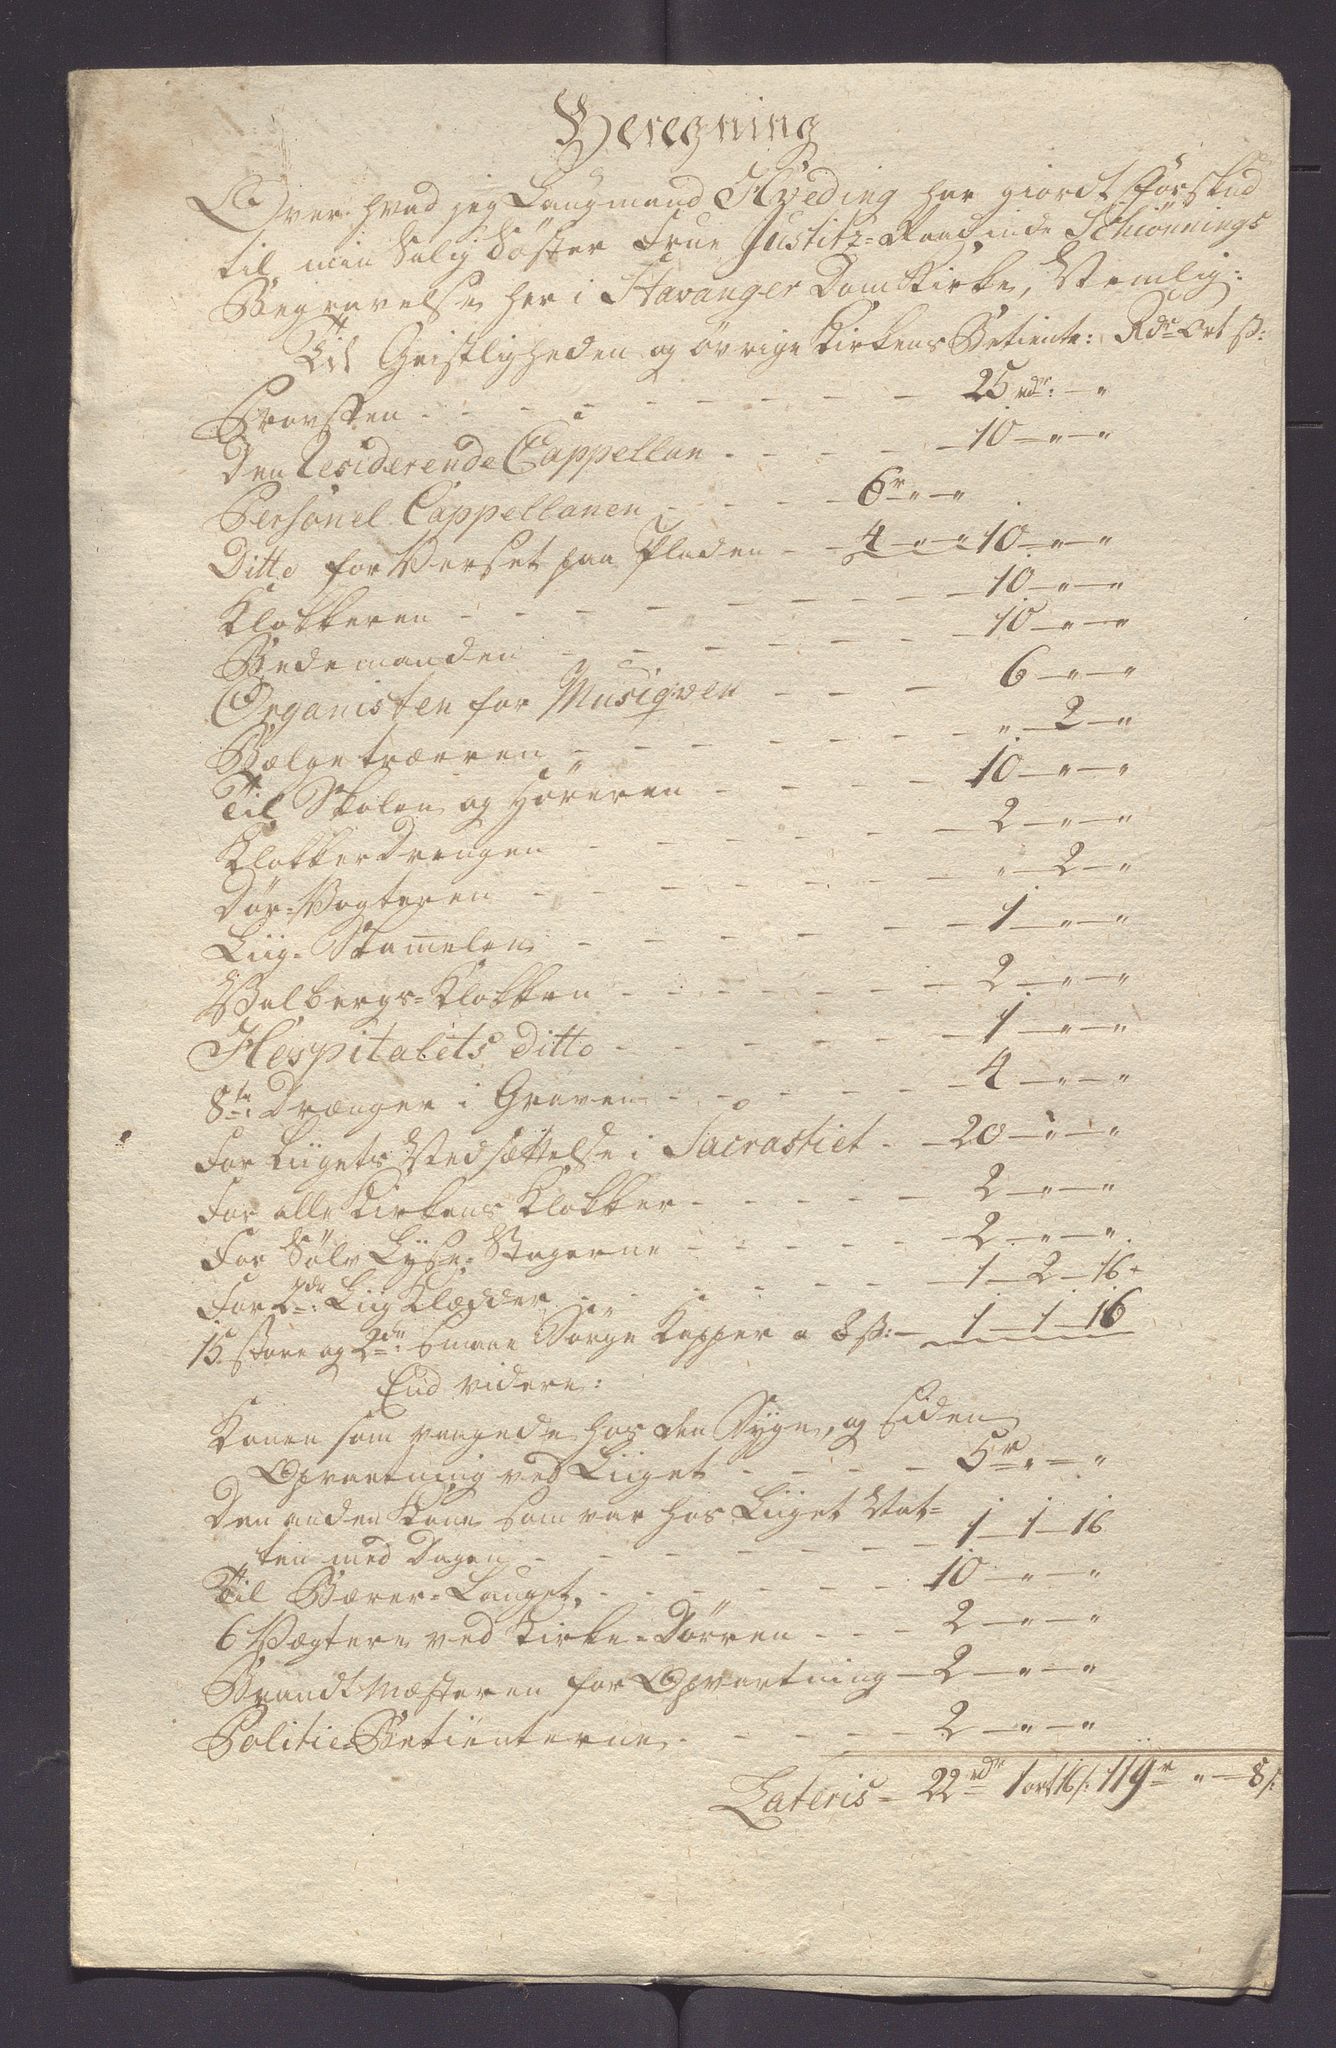 Beregning
Over hvad jeg Laugmand Hveding har giordt Forskud
til min Salig Søster Frue Justitz-Raadinde Schiønnings
Begravelse her i Stavanger Dom Kirke, Nemlig:
Til Geistligheden og øvrige Kirkens Betiente: Rdr Ort ß:
Provsten - - - 25 rdr: - "
Den Residerende Cappellan - - - 10 - " - "
Personel Cappellanen - - - 6r - " - "
Ditto for Verset paa Pladen - 4 - " - " 10 - " - "
Klokkeren - - - 10 - " - "
Bedemanden - - - 10 - " - "
Organisten for Musiqven - - - 6 - " - "
Bælgetræeren - - - " - 2 - "
Til Skolen og Høreren - - - 10 - " - "
Klokker Drengen - - - 2 - " - "
Dør-Vogteren - - - " - 2 - "
Liig-Skamelen - - - 1 - " - "
Valbergs-Klokken - - - 2 - " - "
Hospitalets ditto - - - 1 - " - "
8te Drænger i Graven - - - 4 - " - "
For Liigets Nedsættelse i Sacrastiet - - 20 - " - "
For alle Kirkens Klokker - - - 2 - " - "
For Sølv Lyse-Stagerne - - - 2 - " - "
For 2de: Liig Klæder - - - 1 - 2 - 16
15 store og 2de: smaae Sørge Kapper a 8 ß: - 1 - 1 - 16
End videre:
Konen som vaagede hos den Syge, og siden
Opvartning ved Liiget - - - 5r - " - "
Den anden Kone som var hos Liiget Nat-
ten med Dagen - - - 1 - 1 - 16
Til Bærer-Lauget - - - 10 - " - "
6 Vægtere ved Kirke-Dørren - - - 2 - " - "
Brandt Mæsteren for Opvartning - 2 - " - "
Politie-Betienterne - - - 2 - " - "
Lateris - 22 rdr 1 ort 16 ß: 119r " - 8 ß